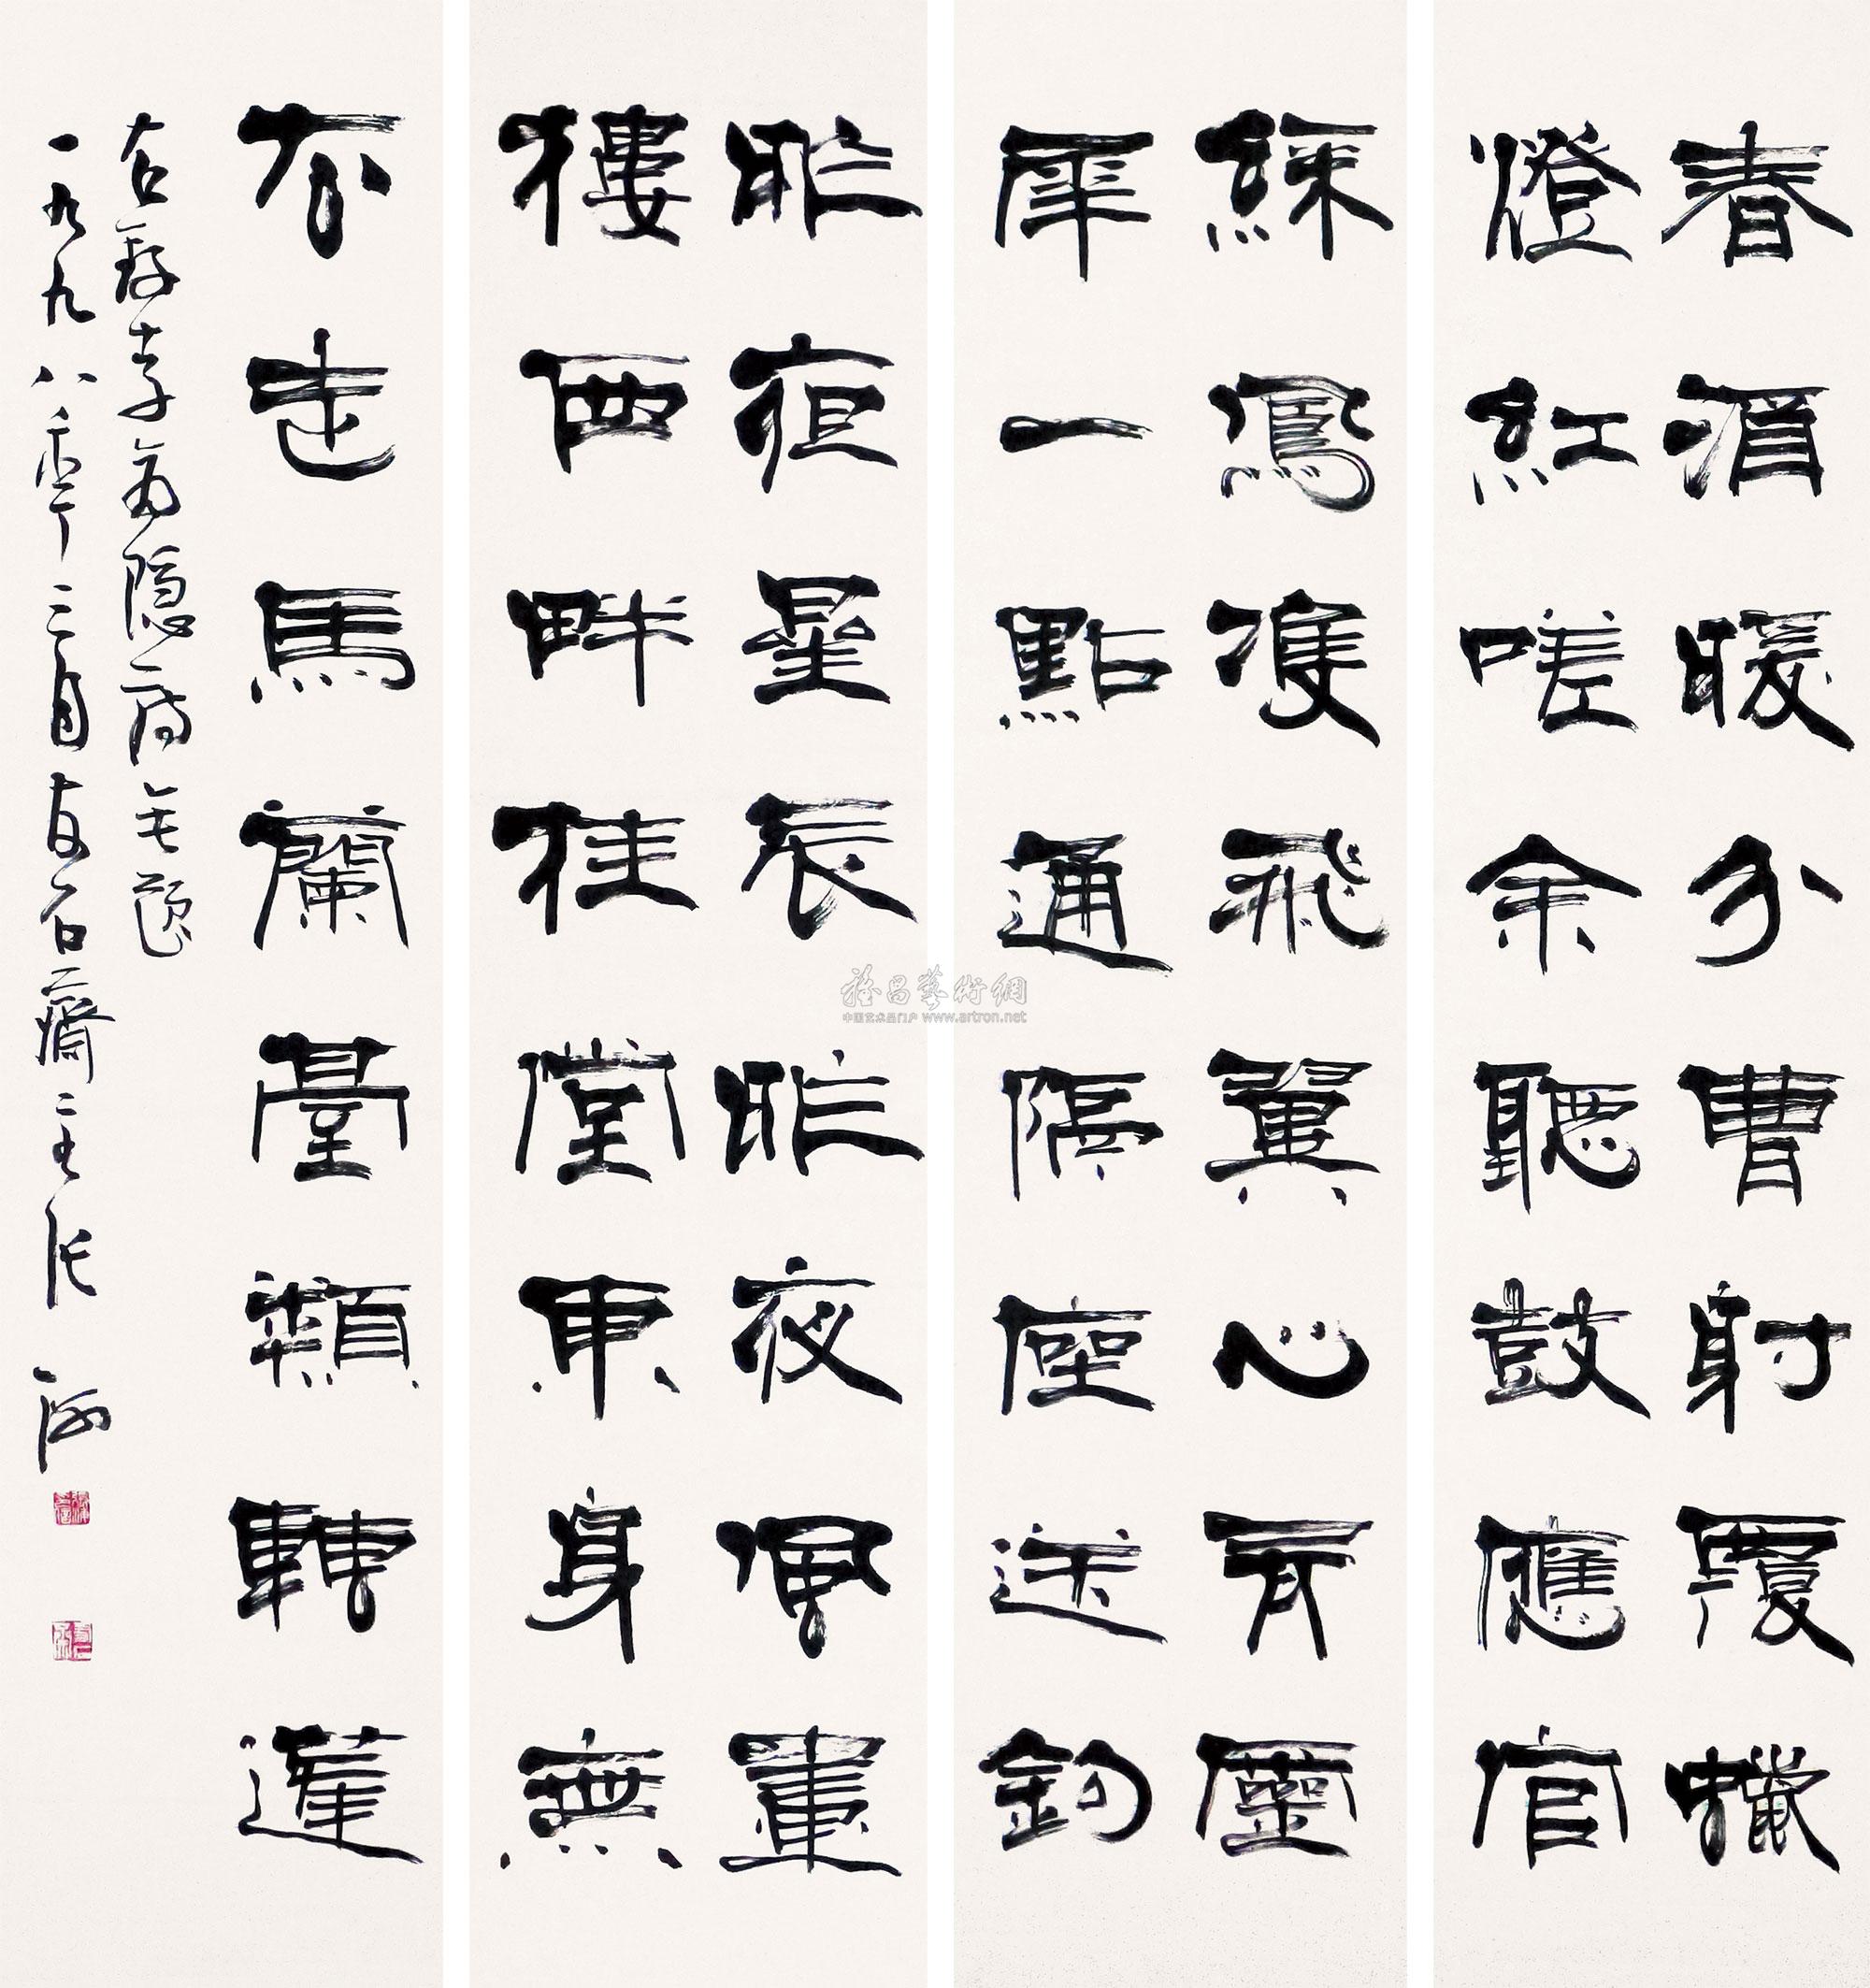 春酒暖分曹射覆蠟
燈紅嗟余聽鼓應官
綵鳳雙飛翼心有靈
犀一點通隔座送鉤
昨夜星辰昨夜風畫
樓西畔桂堂東身無
去走馬蘭臺類轉蓬
右錄李商隐詩無題
一九九八年三月友石齋主張
雅昌藝術網
中国艺术品门户 www.artron.net